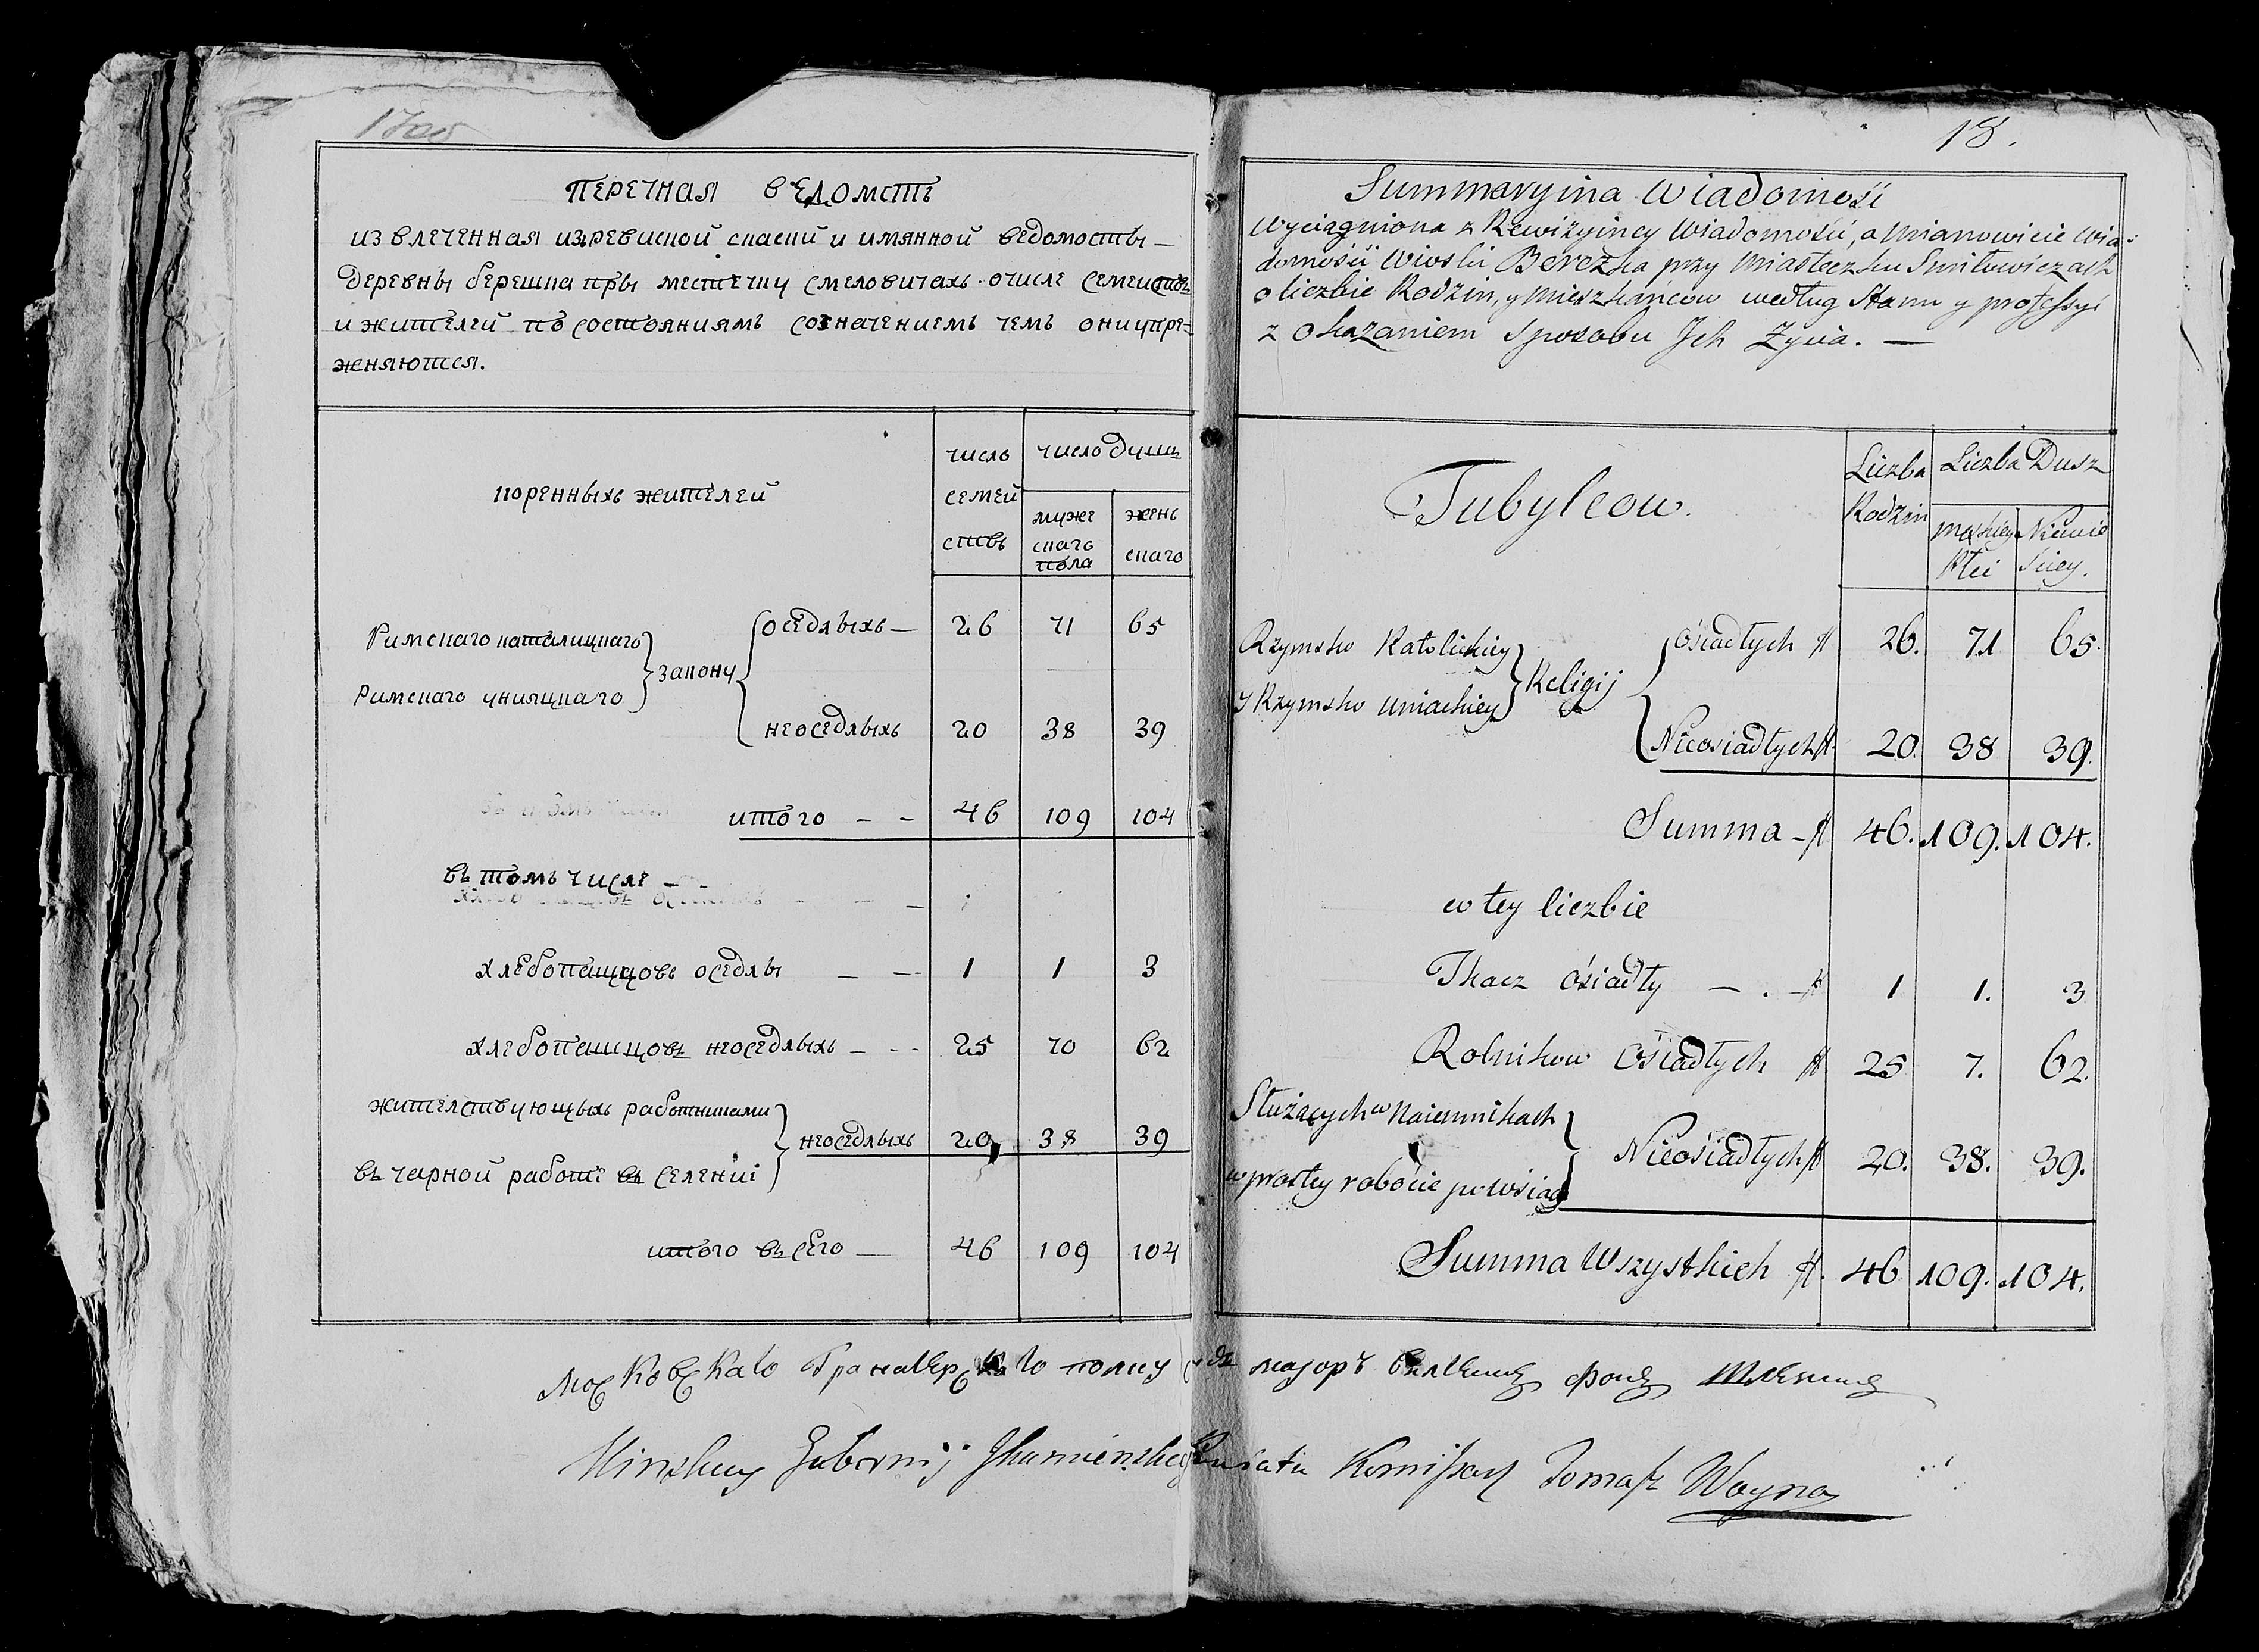 18.
ПЕРЕЧНАЯ ВЕДОМСТЬ
извлеченная изревиской скаски и имянной ведомосты —
деревны бережка пры местечку смеловичахъ очисле семействъ
и жителей по состояниямъ созначениемъ чемъ ониупре-
женяются.
коренныхъ жителей
числь семей ствъ
число душъ
муже скаго пола
женъ скаго
Римскаго католицкаго
Римскаго унияцкаго
закону
оседлыхъ — 26 71 65
неоседлыхъ 20 38 39
итого — — 46 109 104
въ томъ числе — —
хлебопашцовъ оседлы — — 1 1 3
хлебопашцовъ неоседлыхъ — — 25 70 62
жителствующыхъ работниками
въ чарной работе въ селении
неоседлыхъ 20 38 39
итого всего — 46 109 104
Summaryina Wiadomość
Wyciągniona z Rewizyiney Wiadomości, a Mianowicie Wia-
domości Wioski Berezka przy Miasteczku Smiłowiczach
o liczbie Rodzin, y Mieszkańcow według Stanu y professyi
z okazaniem sposobu Jch Życia. —
Tubylcow.
Liczba Rodzin
Liczba Dusz
męskiey Płci
Niewie sciey.
Rzymsko Katolickiey
y Rzymsko Uniackiey
Religij
Osiadłych 26. 71 65.
Nieosiadłych 20. 38 39.
Summa 46. 109. 104.
w tey liczbie
Tkacz Osiadły — . — 1 1. 3
Rolnikow Osiadłych 25 7. 62.
Służących w Naiemnikach
w prostey robocie po wsiach
Nieosiadłych 20. 38. 39.
Summa Wszystkich 46 109. 104.
Московскаго Гранадерскаго полку маиоръ
Minskiey Gubernij Jhumenskiego Powiatu Komissarz Tomasz Woyna